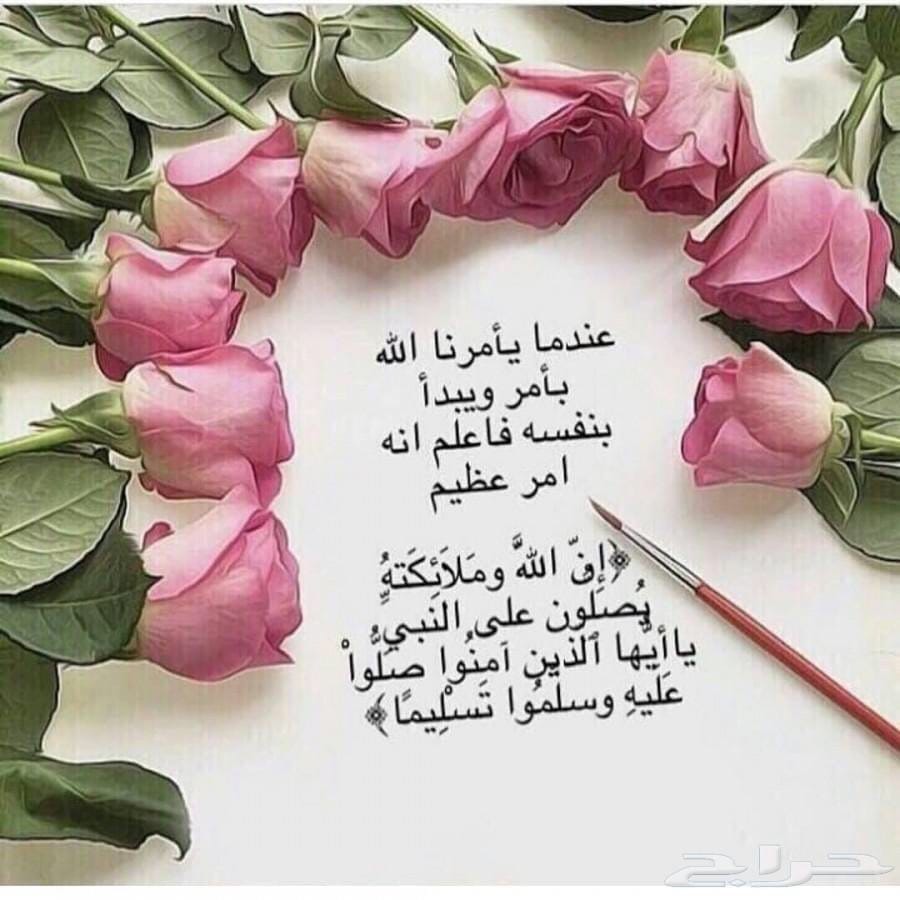 عندما يأمرنا الله
بأمر ويبدأ
بنفسه فاعلم انه
امر عظيم
﴿إِنّ اللهَّ ومَلاَئِكَتهُِّ
يُصَلون على النبي
ياأيُّها ٱلذين اَمنُوا صَلُّواْ
عَلَيهِ وسلمُوا تَسلِْيمًا﴾
حراج